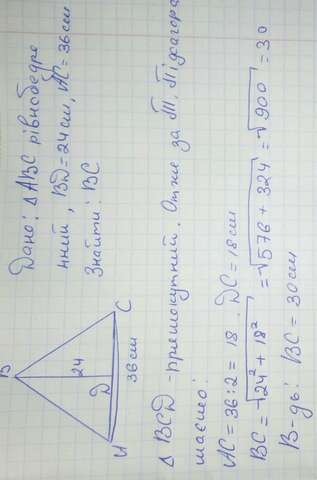 Дано: △ABC рівнобедре
нний, BD=24см, AC=36см
Знайти: BC
B
24
A
D
C
36 см
△ BCD -прямокутний. Отже за Т. Піфагора
маємо:
AC=36:2=18. DC=18см
BC=√24²+18² =√576+324 =√900 =30
В-дь: BC=30см